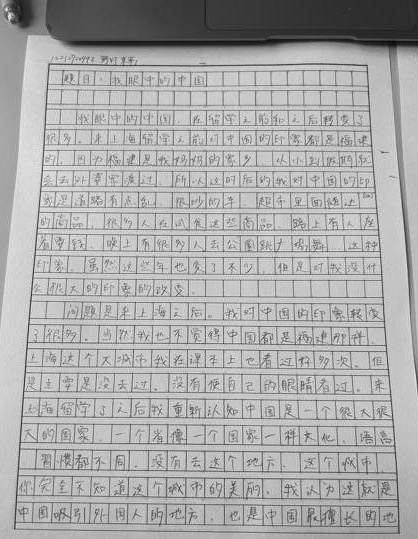 题目：我眼中的中国
我眼中的中国，在留学之前和之后转变了
很多。来上海留学之前对中国的印象都是福建
的，因为福建是我妈妈的家乡，从小到
会去外婆家渡过，所以这时后的我对中国的印
象是道路有点乱，很吵的车，超市里面
的商品，很多人在试食这些商品，路上有人座
着要钱，晚上有很多人去公园跳广场舞，这种
印象。虽然这些年也变了不少，但是对我没什
么很大的印象的改变。
问题是来上海之后。我对中国的印象转变
了很多。当然我也不觉得中国都是福建那样，
上海这个大城市我在课本上也看过好多次。但
是主要是没去过，没有使自己的眼睛看过。来
上海留学了之后我重新认知中国是一个很大很
大的国家。一个省像一个国家一样文化，语言
习惯都不同。没有去这个地方，这个城市，
你完全不知道这个城市的美丽。我认为这就是
中国吸引外国人的地方，也是中国最擅长的地